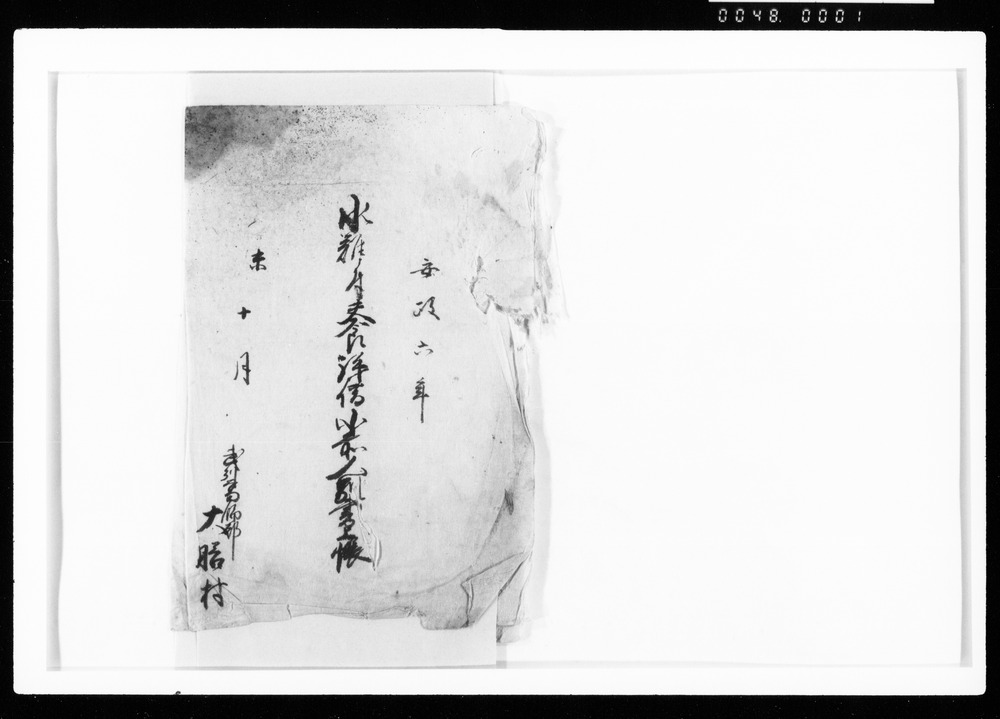 0048. 0001
安政六年
水難ニ付夫食拝借小前人別書上帳
未十月
武州葛飾郡
大膳村